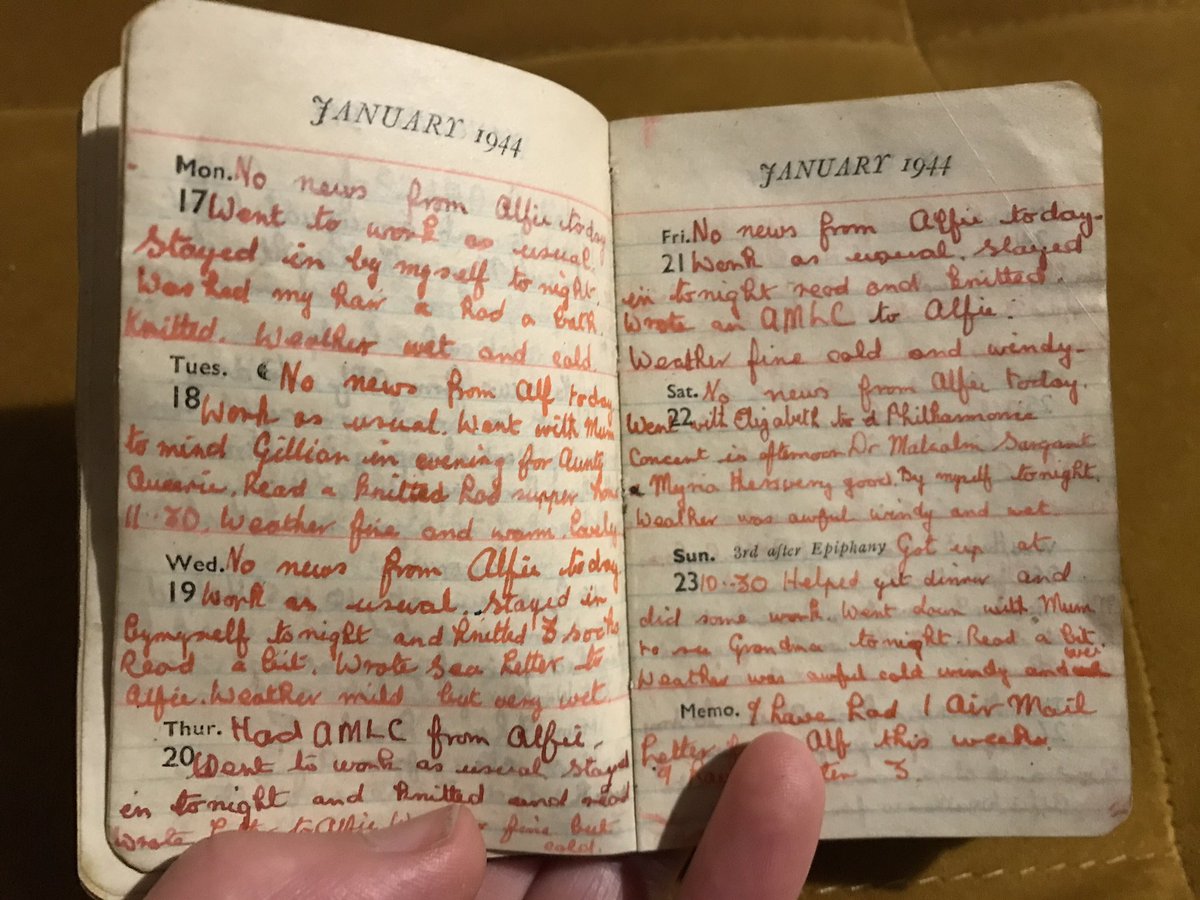 JANUARY 1944
Mon. No news from Alfie today
17 Went to work as usual.
Stayed in by myself to night.
Washed my hair & had a bath.
Knitted. Weather wet and cold.
Tues. No news from Alf today
18 Work as usual. Went with Mum
to mind Gillian in evening for Aunty
Queenie. Read & knitted Had supper home
11.30. Weather fine and warm. Lovely
Wed. No news from Alfie today
19 Work as usual. Stayed in
bymyself tonight and knitted 3 socks
Read a bit. Wrote Sea Letter to
Alfie. Weather mild but very wet
Thur. Had AMLC from Alfie.
20 Went to work as usual stayed
in tonight and knitted and read
Wrote to Alfie fine but
cold.
JANUARY 1944
Fri. No news from Alfie today.
21 Work as usual. Stayed
in tonight read and knitted.
Wrote an AMLC to Alfie.
Weather fine cold and windy.
Sat. No news from Alfie today.
22 Went with Elizabeth to a Philharmonic
Concert in afternoon Dr Malcolm Sargant
& Myra Hess very good. By myself tonight.
Weather was awful windy and wet
Sun. 3rd after Epiphany Got up at
23 10.30 Helped get dinner and
did some work. Went down with Mum
to see Grandma tonight. Read a bit.
Weather was awful cold windy and wet
Memo. I have had 1 Air Mail
Letter Alf this week.
I 3